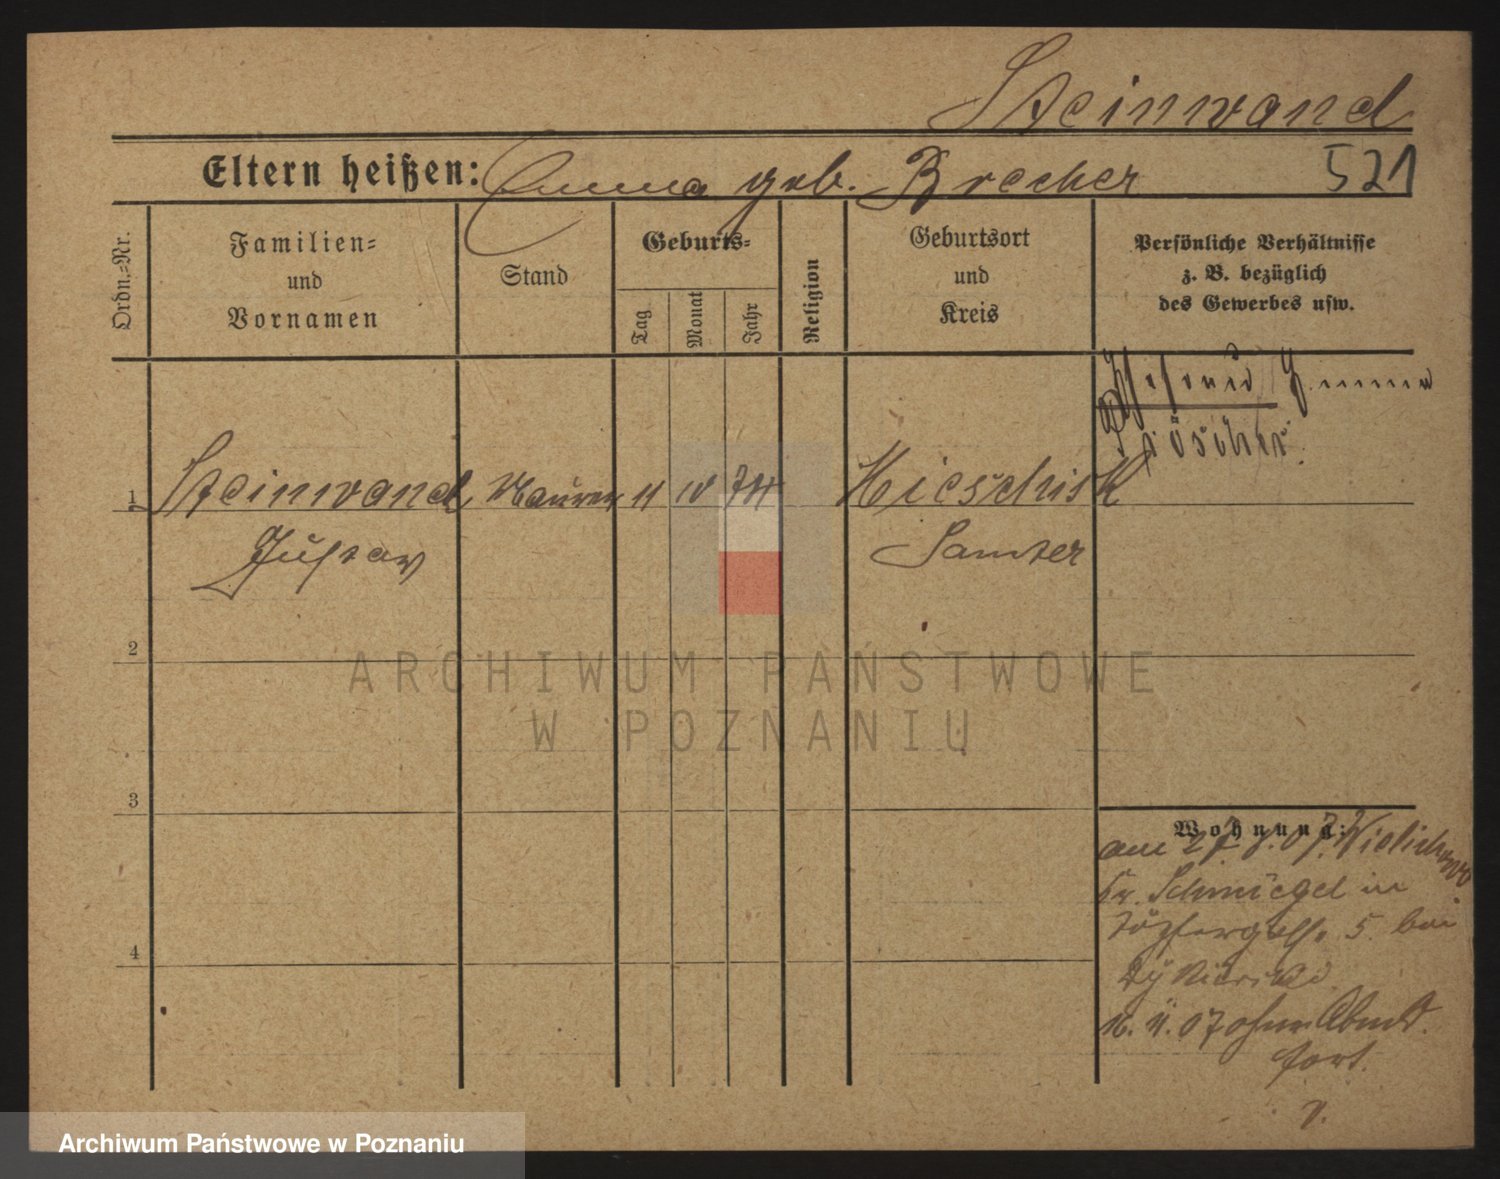 Steinwand
Eltern heißen: Emma geb. Brecher 521
Ordn.=Nr.
Familien=
und
Vornamen
Stand
Geburts=
Tag
Monat
Jahr
Religion
Geburtsort
und
Kreis
Persönliche Verhältnisse
z. B. bezüglich
des Gewerbes usw.
Ehefrau Emma
1 Steinwand Maurer 11 IV 74
Gustav
Samter
2
3
4
Wohnung:
am 27.7.07.
Kr. Schmiegel in
Töpfergasse 5. bei
16. 11. 07 ohne Abmld.
fort.
ARCHIWUM PAŃSTWOWE
W POZNANIU
Archiwum Państwowe w Poznaniu